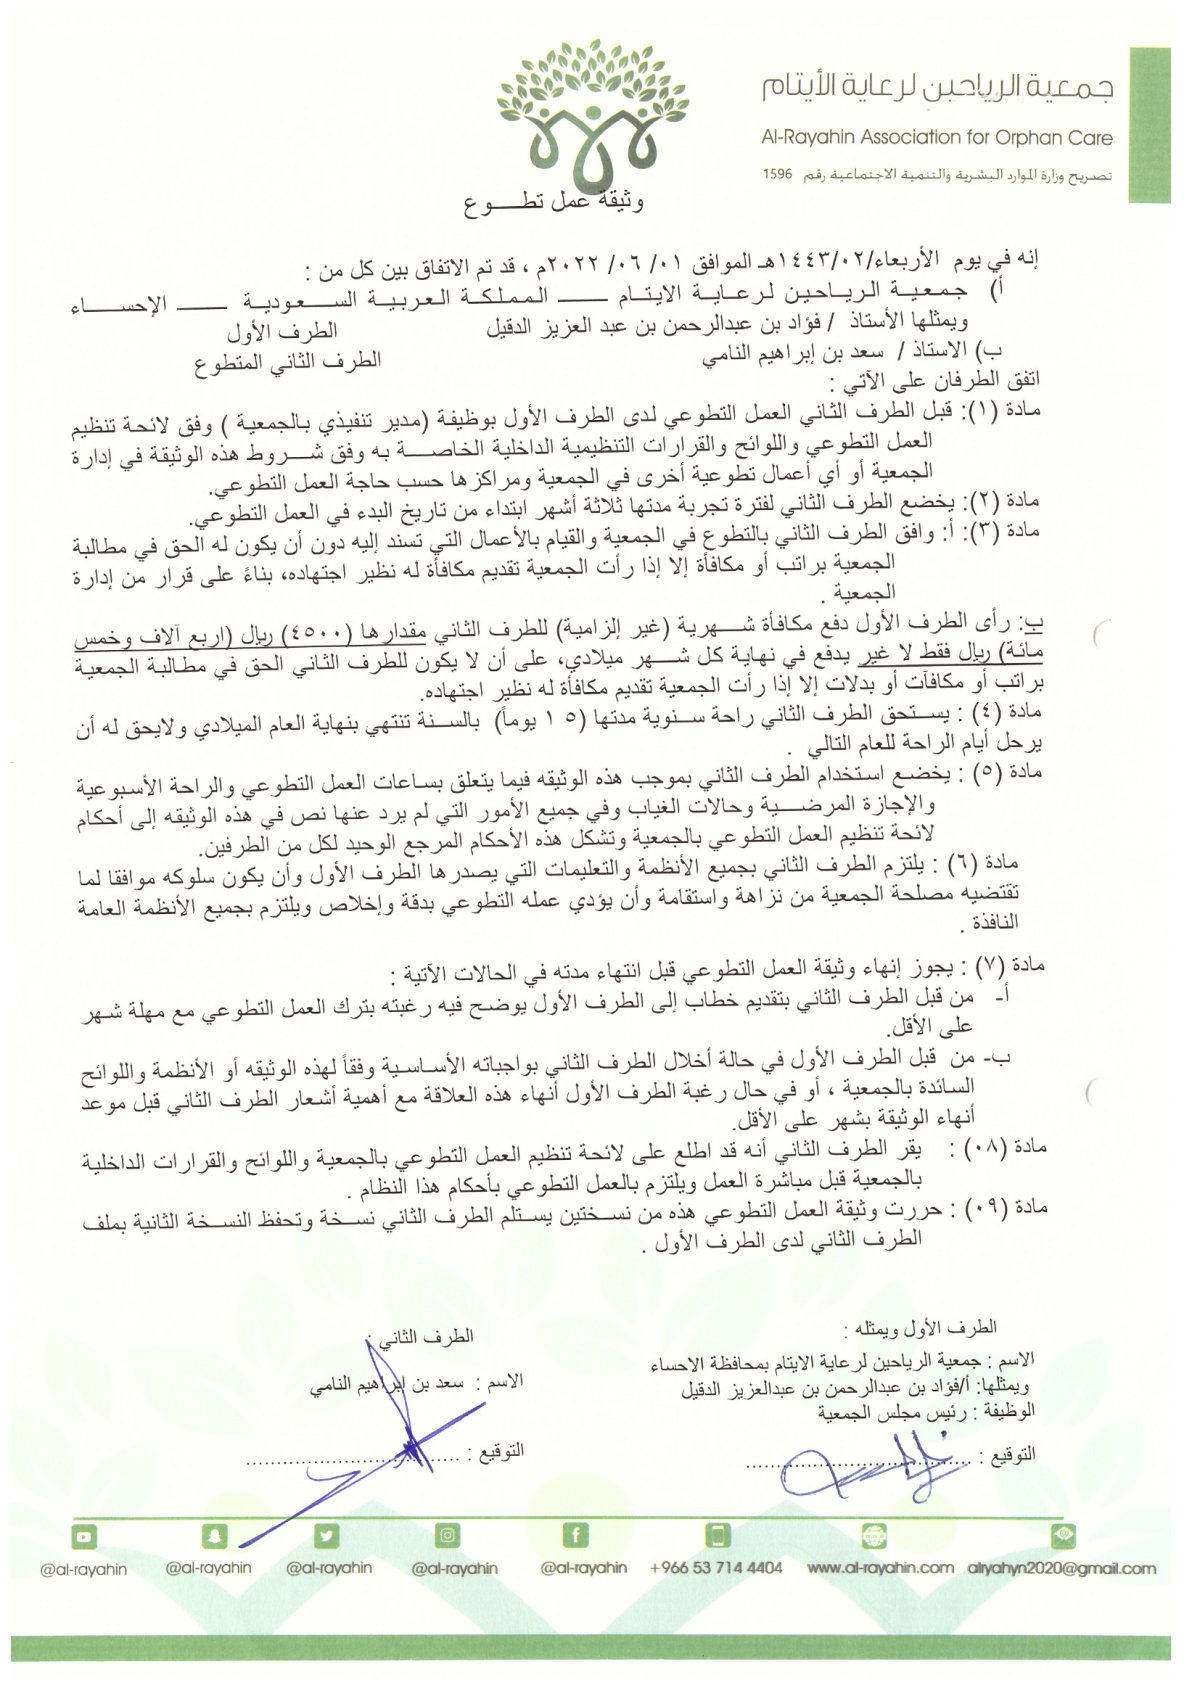 جمعية الرياحين لرعاية الأيتام
Al-Rayahin Association for Orphan Care
تصريح وزارة الموارد البشرية والتنمية الاجتماعية رقم 1596
وثيقة عمل تطـــوع
إنه في يوم الأربعاء/١٤٤٣/٠٢هـ الموافق ٠١/ ٠٦/ ٢٠٢٢م ، قد تم الاتفاق بين كل من :
أ) جمعية الرياحين لرعاية الايتام ــــ المملكة العربية السعودية ــــ الإحساء
ويمثلها الأستاذ / فؤاد بن عبدالرحمن بن عبد العزيز الدقيل الطرف الأول
ب) الاستاذ / سعد بن إبراهيم النامي الطرف الثاني المتطوع
اتفق الطرفان على الآتي :
مادة (١): قبل الطرف الثاني العمل التطوعي لدى الطرف الأول بوظيفة (مدير تنفيذي بالجمعية ) وفق لائحة تنظيم
العمل التطوعي واللوائح والقرارات التنظيمية الداخلية الخاصة به وفق شروط هذه الوثيقة في إدارة
الجمعية أو أي أعمال تطوعية أخرى في الجمعية ومراكزها حسب حاجة العمل التطوعي.
مادة (٢): يخضع الطرف الثاني لفترة تجربة مدتها ثلاثة أشهر ابتداء من تاريخ البدء في العمل التطوعي.
مادة (٣): أ: وافق الطرف الثاني بالتطوع في الجمعية والقيام بالأعمال التي تسند إليه دون أن يكون له الحق في مطالبة
الجمعية براتب أو مكافأة إلا إذا رأت الجمعية تقديم مكافأة له نظير اجتهاده، بناءً على قرار من إدارة
الجمعية .
ب: رأى الطرف الأول دفع مكافأة شهرية (غير إلزامية) للطرف الثاني مقدارها (٤٥٠٠) ريال (اربع آلاف وخمس
مائة) ريال فقط لا غير يدفع في نهاية كل شهر ميلادي، على أن لا يكون للطرف الثاني الحق في مطالبة الجمعية
براتب أو مكافآت أو بدلات إلا إذا رأت الجمعية تقديم مكافأة له نظير اجتهاده.
مادة (٤) : يستحق الطرف الثاني راحة سنوية مدتها (١٥ يوماً) بالسنة تنتهي بنهاية العام الميلادي ولايحق له أن
يرحل أيام الراحة للعام التالي .
مادة (٥) : يخضع استخدام الطرف الثاني بموجب هذه الوثيقه فيما يتعلق بساعات العمل التطوعي والراحة الأسبوعية
والإجازة المرضية وحالات الغياب وفي جميع الأمور التي لم يرد عنها نص في هذه الوثيقه إلى أحكام
لائحة تنظيم العمل التطوعي بالجمعية وتشكل هذه الأحكام المرجع الوحيد لكل من الطرفين.
مادة (٦) : يلتزم الطرف الثاني بجميع الأنظمة والتعليمات التي يصدرها الطرف الأول وأن يكون سلوكه موافقا لما
تقتضيه مصلحة الجمعية من نزاهة واستقامة وأن يؤدي عمله التطوعي بدقة وإخلاص ويلتزم بجميع الأنظمة العامة
النافذة .
مادة (٧) : يجوز إنهاء وثيقة العمل التطوعي قبل انتهاء مدته في الحالات الآتية :
أـ من قبل الطرف الثاني بتقديم خطاب إلى الطرف الأول يوضح فيه رغبته بترك العمل التطوعي مع مهلة شهر
على الأقل.
ب- من قبل الطرف الأول في حالة أخلال الطرف الثاني بواجباته الأساسية وفقاً لهذه الوثيقه أو الأنظمة واللوائح
السائدة بالجمعية ، أو في حال رغبة الطرف الأول أنهاء هذه العلاقة مع أهمية أشعار الطرف الثاني قبل موعد
أنهاء الوثيقة بشهر على الأقل.
مادة (٠٨) : يقر الطرف الثاني أنه قد اطلع على لائحة تنظيم العمل التطوعي بالجمعية واللوائح والقرارات الداخلية
بالجمعية قبل مباشرة العمل ويلتزم بالعمل التطوعي بأحكام هذا النظام .
مادة (٠٩) : حررت وثيقة العمل التطوعي هذه من نسختين يستلم الطرف الثاني نسخة وتحفظ النسخة الثانية بملف
الطرف الثاني لدى الطرف الأول .
الطرف الأول ويمثله :
الاسم : جمعية الرياحين لرعاية الايتام بمحافظة الاحساء
ويمثلها: أ/فؤاد بن عبدالرحمن بن عبدالعزيز الدقيل
الوظيفة : رئيس مجلس الجمعية
التوقيع : ......................................
الطرف الثاني :
الاسم : سعد بن إبراهيم النامي
التوقيع : ......................................
@al-rayahin @al-rayahin @al-rayahin @al-rayahin @al-rayahin +966 53 714 4404 www.al-rayahin.com alryahyn2020@gmail.com